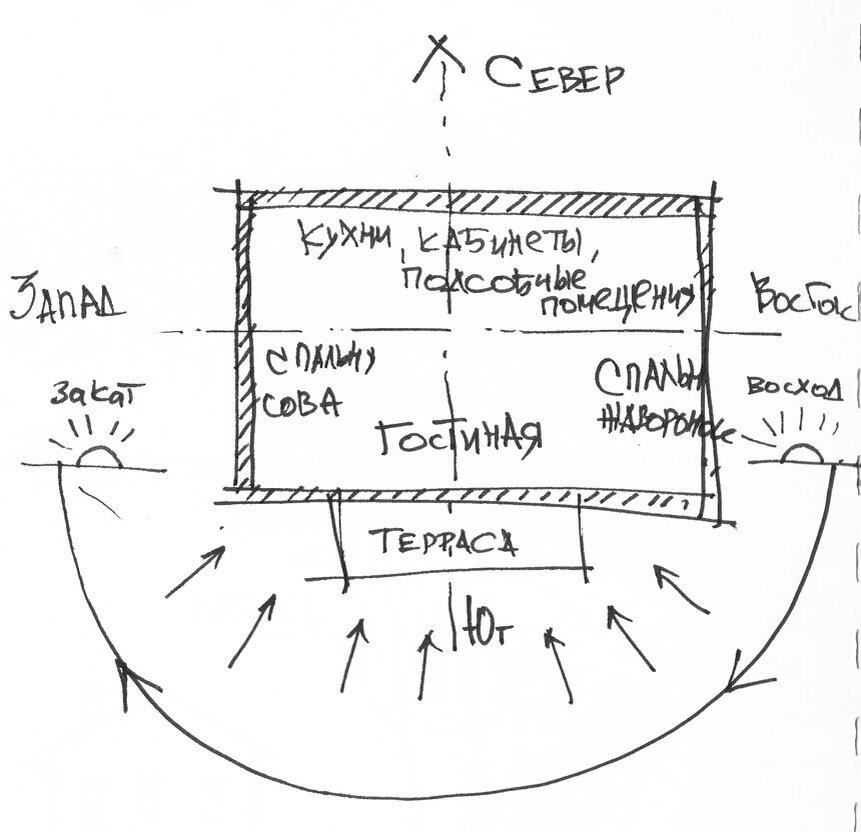 СЕВЕР
КУХНИ, КАБИНЕТЫ,
ПОДСОБНЫЕ
ПОМЕЩЕНИЯ
ЗАПАД
ВОСТОК
СПАЛЬНИ
СОВА
ЗАКАТ
СПАЛЬН
ЖАВОРОНОК
ВОСХОД
ГОСТИНАЯ
ТЕРРАСА
ЮГ